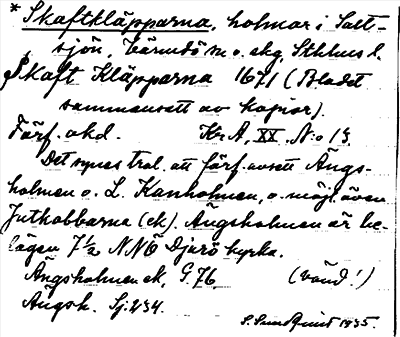 * Skaftkläpparna, holmar i Salt-
sjön, Värmdö sn o. skg, Sthlms l.
Skaft Kläpparna 1671 (Bladet
sammansatt av kopior).
Förf. okd. Kr A, XX, No 13.
Det synes trol. att förf. avsett Ängs-
holmen o. L. Kanholmen, o. möjl. även
Juthobbarna (ek). Ängsholmen är be-
lägen 7 1/2 NNÖ Djurö kyrka.
Ängsholmen ek, G. 76, (vänd!)
Ängsh. Sj. 234.
S. Sundquist 1935.